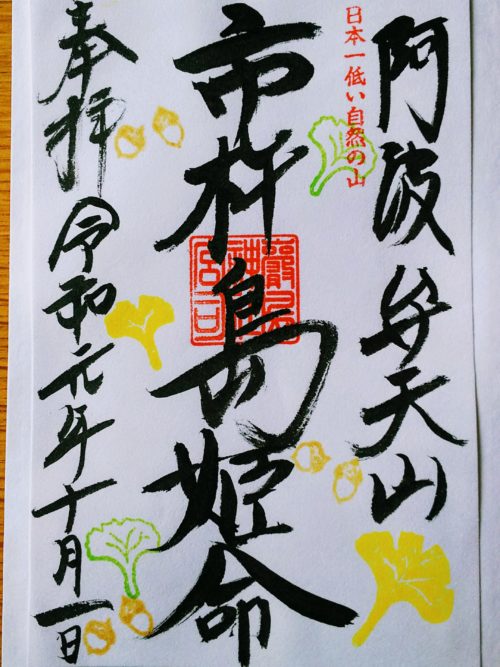 阿波弁天山
日本一低い自然の山
市杵島姫命
奉拝
令和元年十月一日